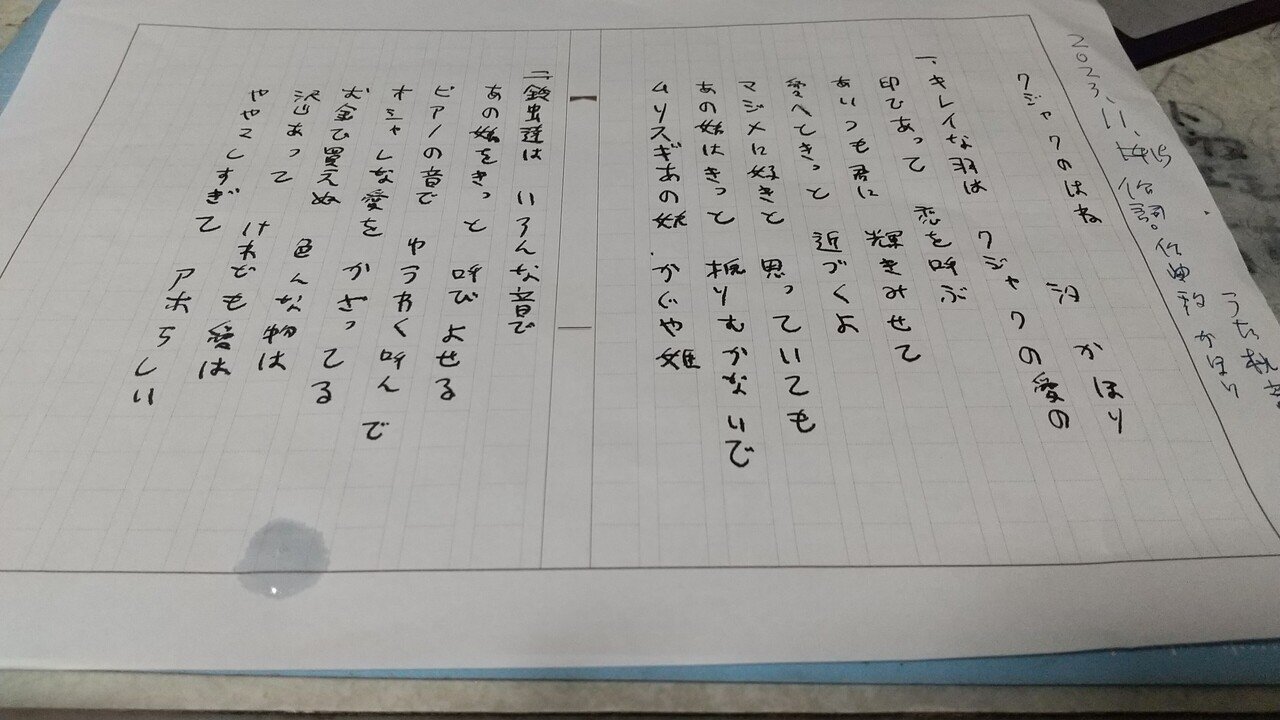 2023、11、
作詞。作曲
かほり
クジャクのはね
汐 かほり
一、キレイな羽は クジャクの愛の
印であって 恋を呼ぶ
あいつも君に 輝きみせて
愛へてきっと 近づくよ
マジメに好きと 思っていても
あの娘はきっと 振りむかないで
ムリスギあの娘.かぐや姫
二、鈴虫達は いろんな音で
あの娘をきっと 呼びよせる
ピアノの音で ゆうわく呼んで
オシャレな愛を かざってる
お金で買えぬ 色んな物は
沢山あって けれども愛は
ややこしすぎて アホらしい